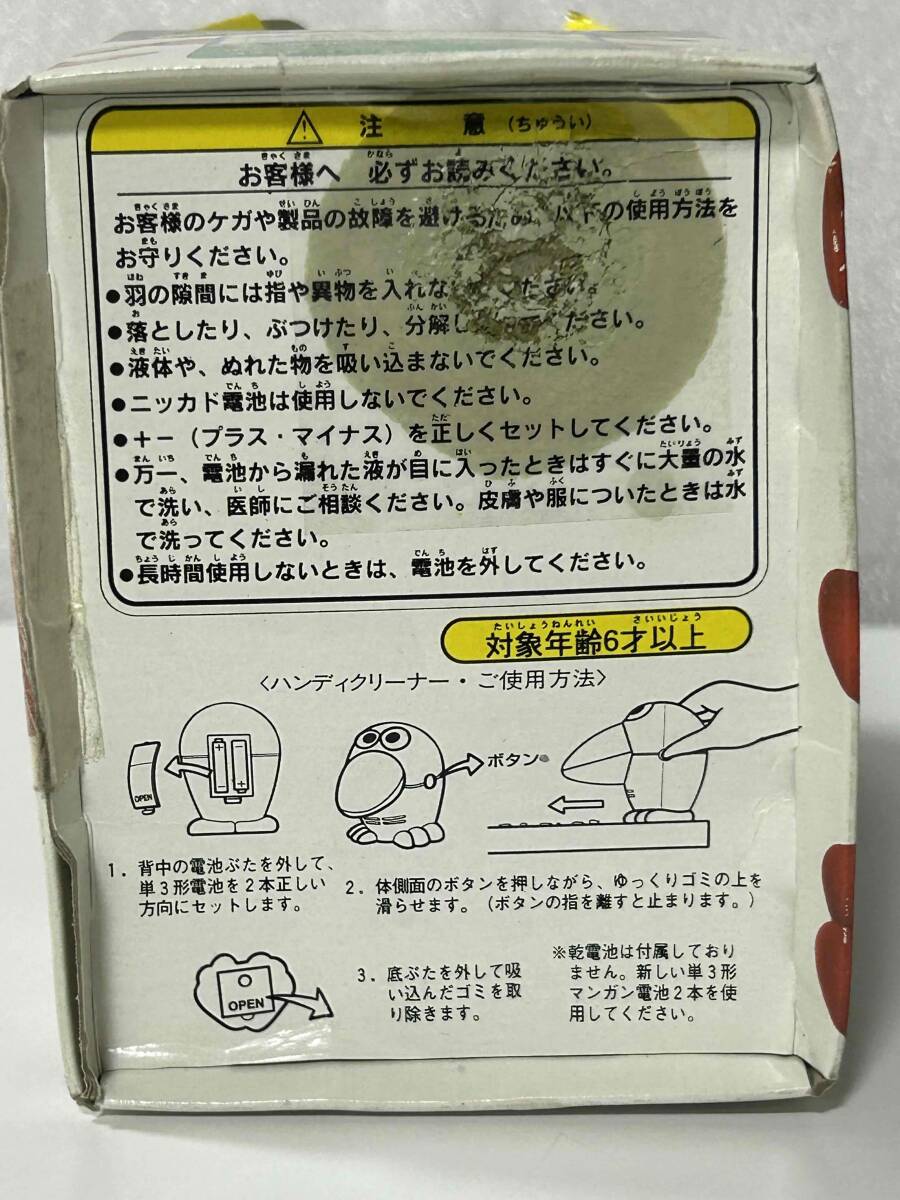 注意(ちゅうい)
お客様へ 必ずお読みください。
お客様のケガや製品の故障を避けるため、以下の使用方法を
お守りください。
●羽の隙間には指や異物を入れな
●落としたり、ぶつけたり、分解し ください。
●液体や、ぬれた物を吸い込まないでください。
●ニッカド電池は使用しないでください。
●+-(プラス・マイナス)を正しくセットしてください。
●万一、電池から漏れた液が目に入ったときはすぐに大量の水
で洗い、医師にご相談ください。皮膚や服についたときは水
で洗ってください。
●長時間使用しないときは、電池を外してください。
たいしょうねんれい さいいじょう
対象年齢6才以上
〈ハンディクリーナー・ご使用方法〉
OPEN
ボタン
1. 背中の電池ぶたを外して、
単3形電池を2本正しい
方向にセットします。
2. 体側面のボタンを押しながら、ゆっくりゴミの上を
滑らせます。(ボタンの指を離すと止まります。)
OPEN
3. 底ぶたを外して吸
い込んだゴミを取
り除きます。
※乾電池は付属しており
ません。新しい単3形
マンガン電池2本を使
用してください。